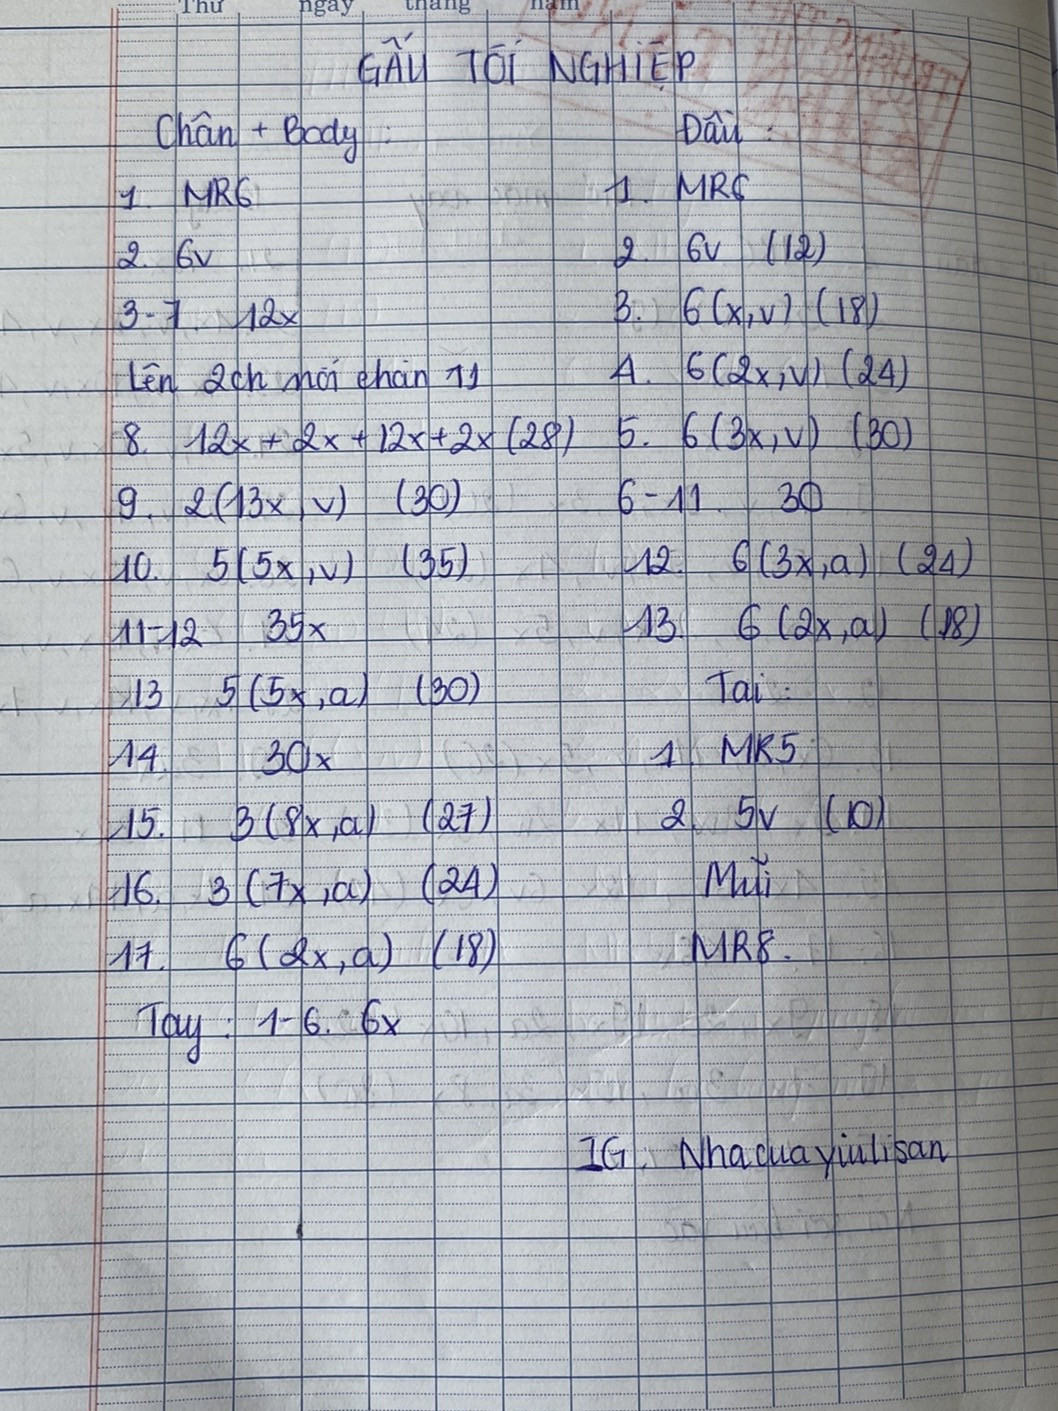 Thứ ngày tháng năm
GẤU TỘI NGHIỆP
Chân + Body :
1. MR6
2. 6v
3-7. 12x
Lên 2ch nối chân 11
8. 12x + 2x + 12x + 2x (28)
9. 2(13x, v) (30)
10. 5(5x, v) (35)
11-12 35x
13 5(5x, a) (30)
14. 30x
15. 3(8x, a) (27)
16. 3(7x, a) (24)
17. 6(2x, a) (18)
Tay : 1-6. 6x
Đầu :
1. MR6
2. 6v (12)
3. 6(x, v) (18)
4. 6(2x, v) (24)
5. 6(3x, v) (30)
6-11. 30
12. 6(3x, a) (24)
13. 6(2x, a) (18)
Tai :
1 MR5
2. 5v (10)
Mũi
MR8.
IG. Nhacuayiulisan